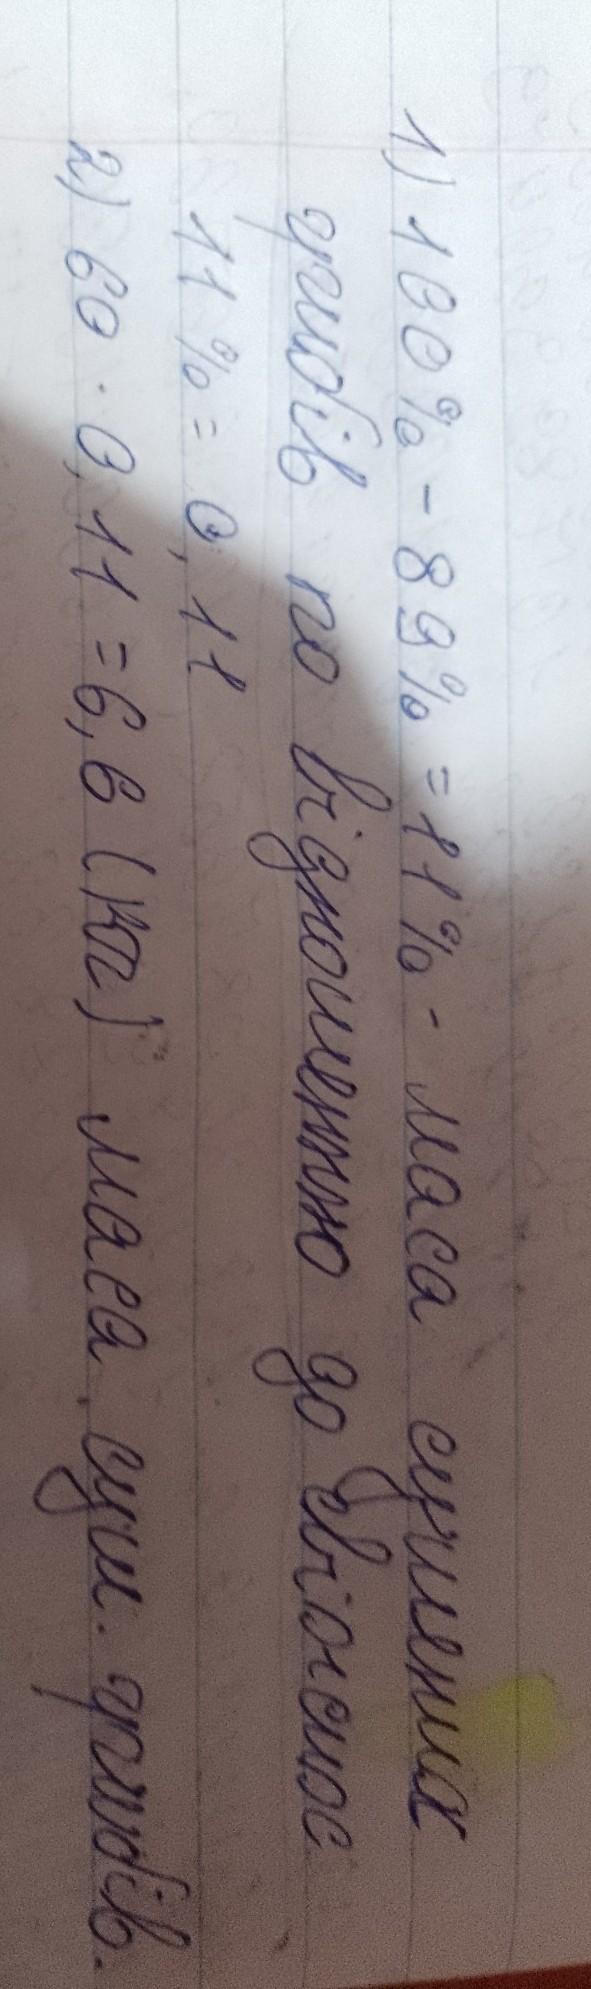 1) 100% - 89% = 11% - маса сушених
грибів по відношенню до свіжих
11% = 0,11
2) 60 · 0,11 = 6,6 (кг) маса суш. грибів.